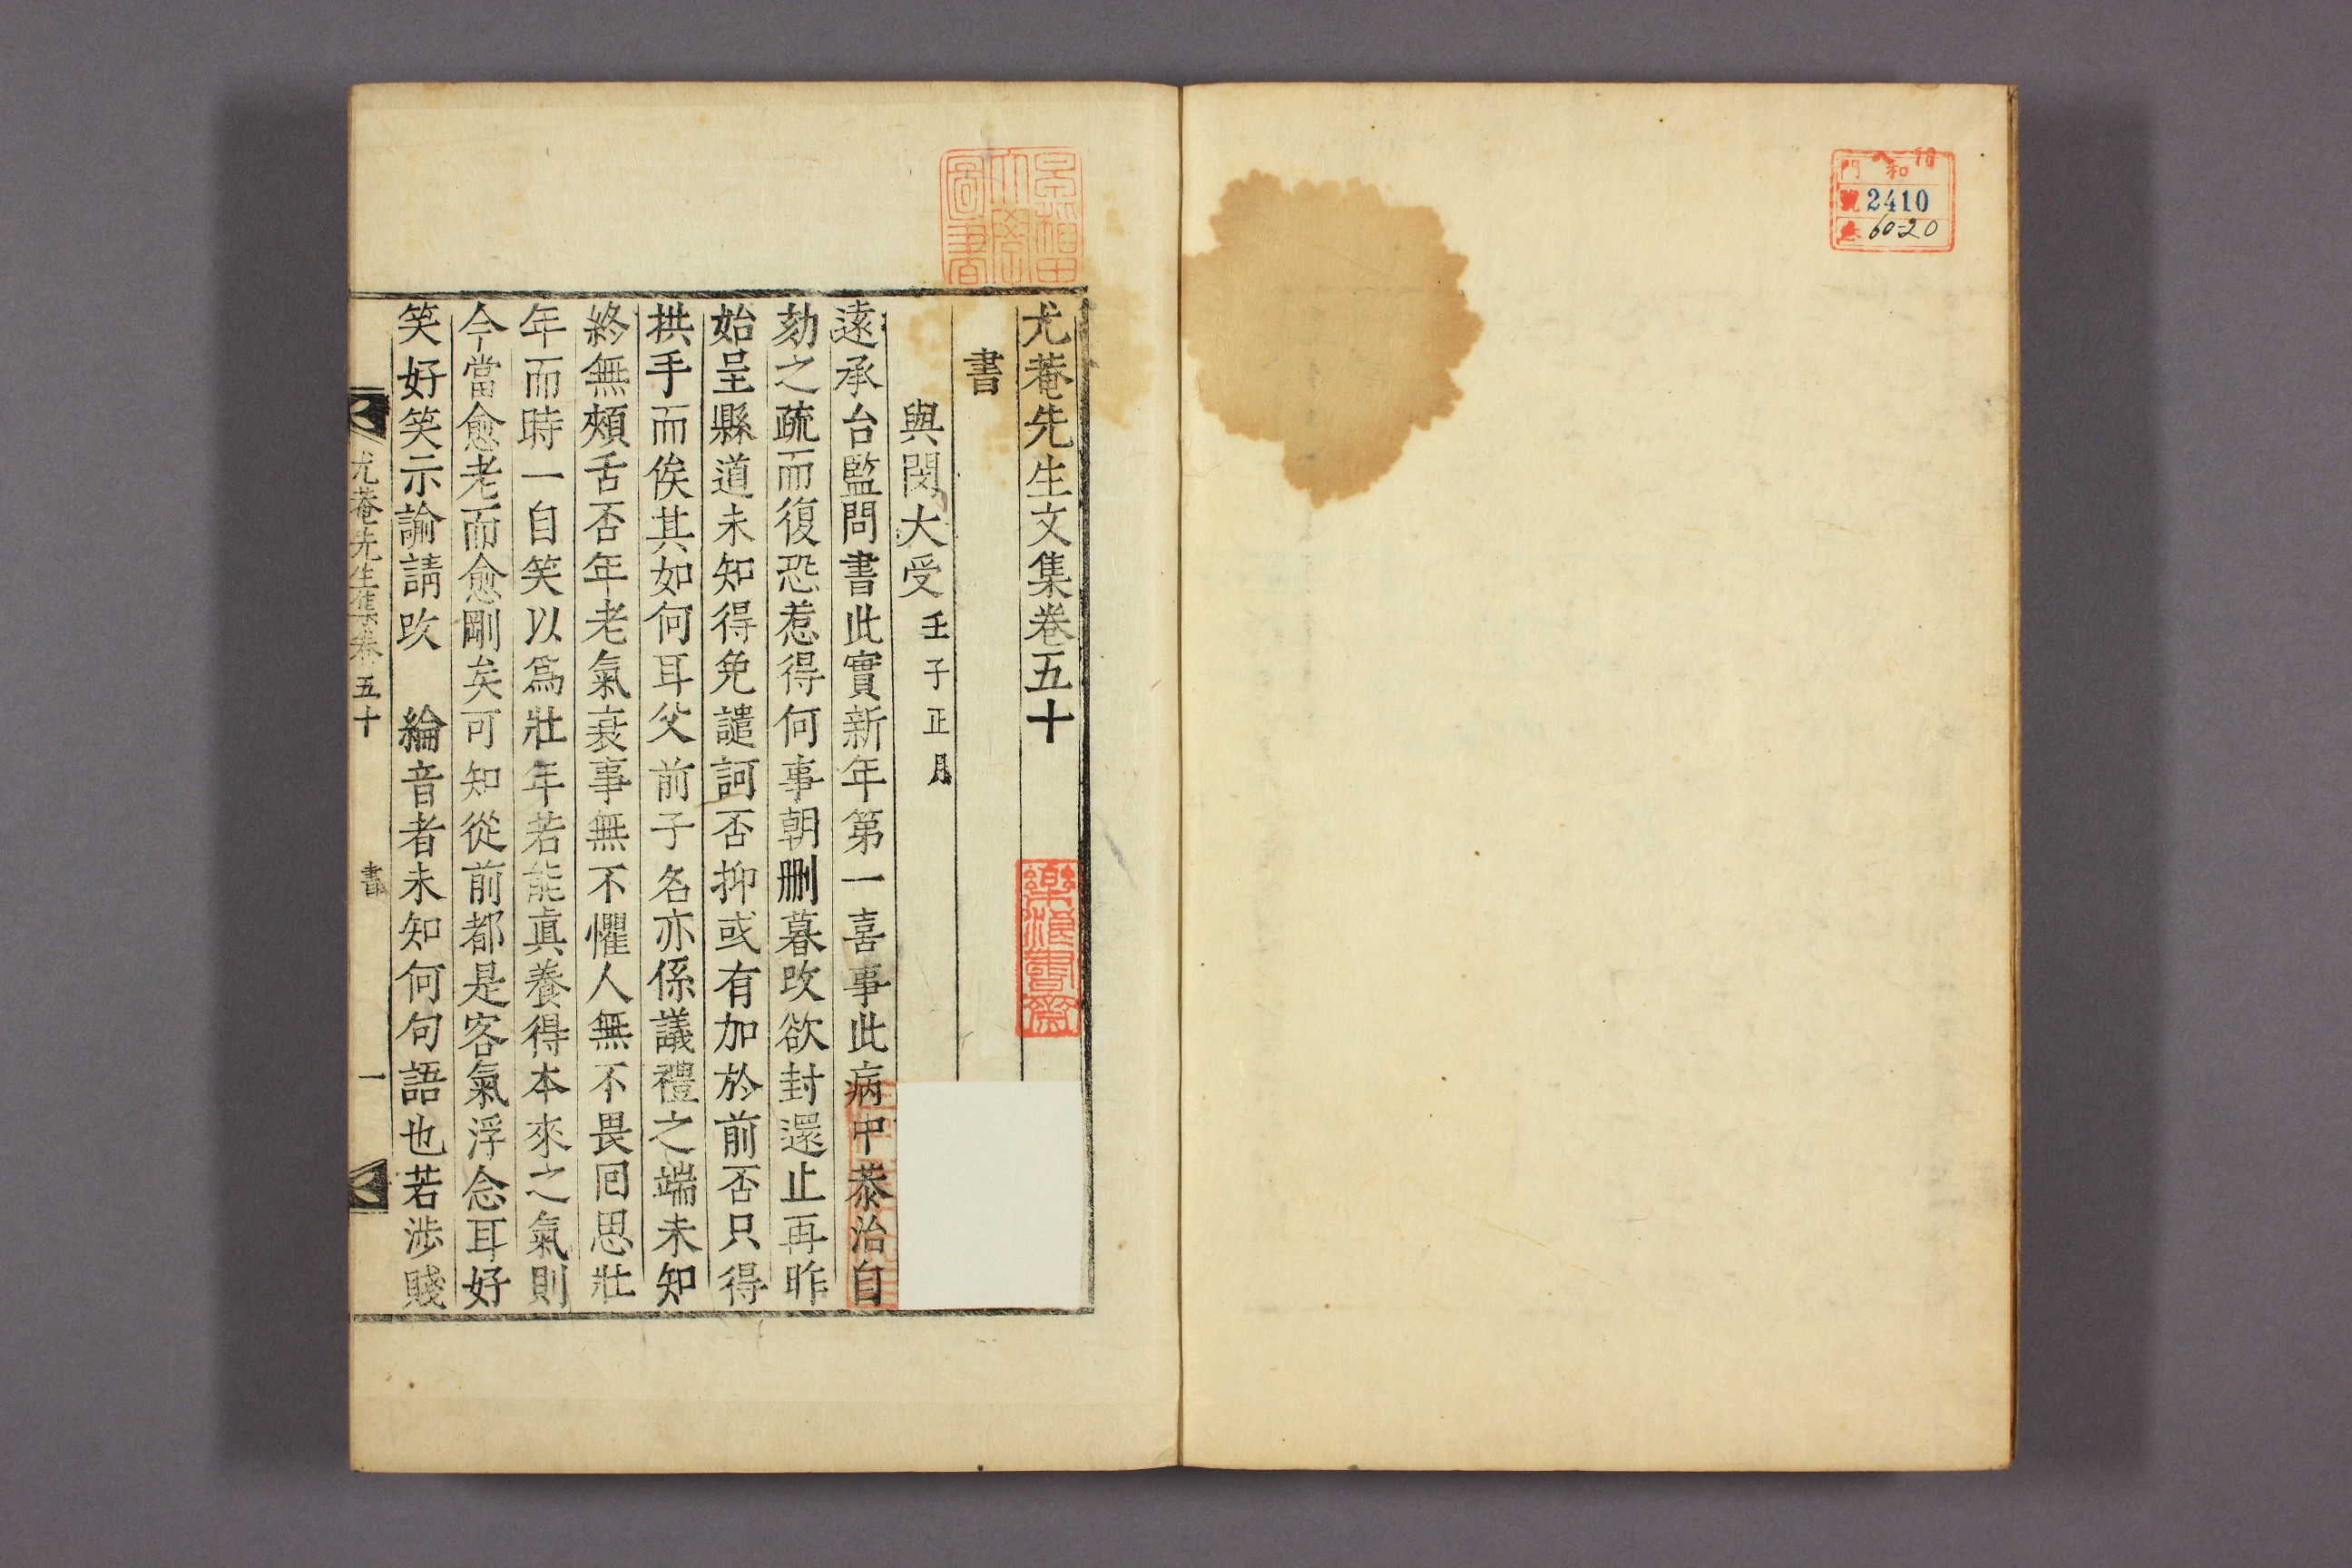 門 和
號 2410
卷 60-20
早稲田
大學
圖書
尤菴先生文集卷五十
書
與閔大受 壬子正月
遠承台監問書此實新年第一喜事此病中蔘治自
劾之疏而復恐惹得何事朝刪暮改欲封還止再昨
始呈縣道未知得免譴訶否抑或有加於前否只得
拱手而俟其如何耳父前子名亦係議禮之端未知
終無頰舌否年老氣衰事無不懼人無不畏回思壯
年而時一自笑以爲壯年若能眞養得本來之氣則
今當愈老而愈剛矣可知從前都是客氣浮念耳好
笑好笑示諭請改 綸音者未知何句語也若涉賤
尤菴先生集卷五十 書 一